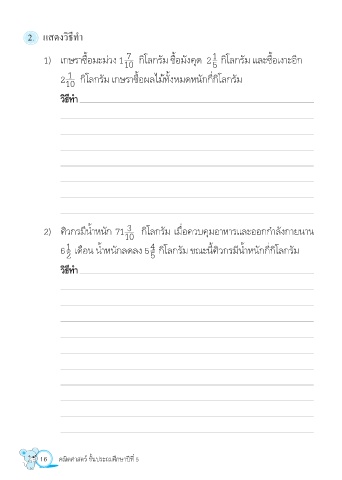 2. แสดงวิธีทำ
1) เกษราซื้อมะม่วง 1 7/10 กิโลกรัม ซื้อมังคุด 2 1/5 กิโลกรัม และซื้อเงาะอีก
2 1/10 กิโลกรัม เกษราซื้อผลไม้ทั้งหมดหนักกี่กิโลกรัม
วิธีทำ
2) ศิวกรมีน้ำหนัก 71 3/10 กิโลกรัม เมื่อควบคุมอาหารและออกกำลังกายนาน
6 1/2 เดือน น้ำหนักลดลง 5 4/5 กิโลกรัม ขณะนี้ศิวกรมีน้ำหนักกี่กิโลกรัม
วิธีทำ
16 คณิตศาสตร์ ชั้นประถมศึกษาปีที่ 5